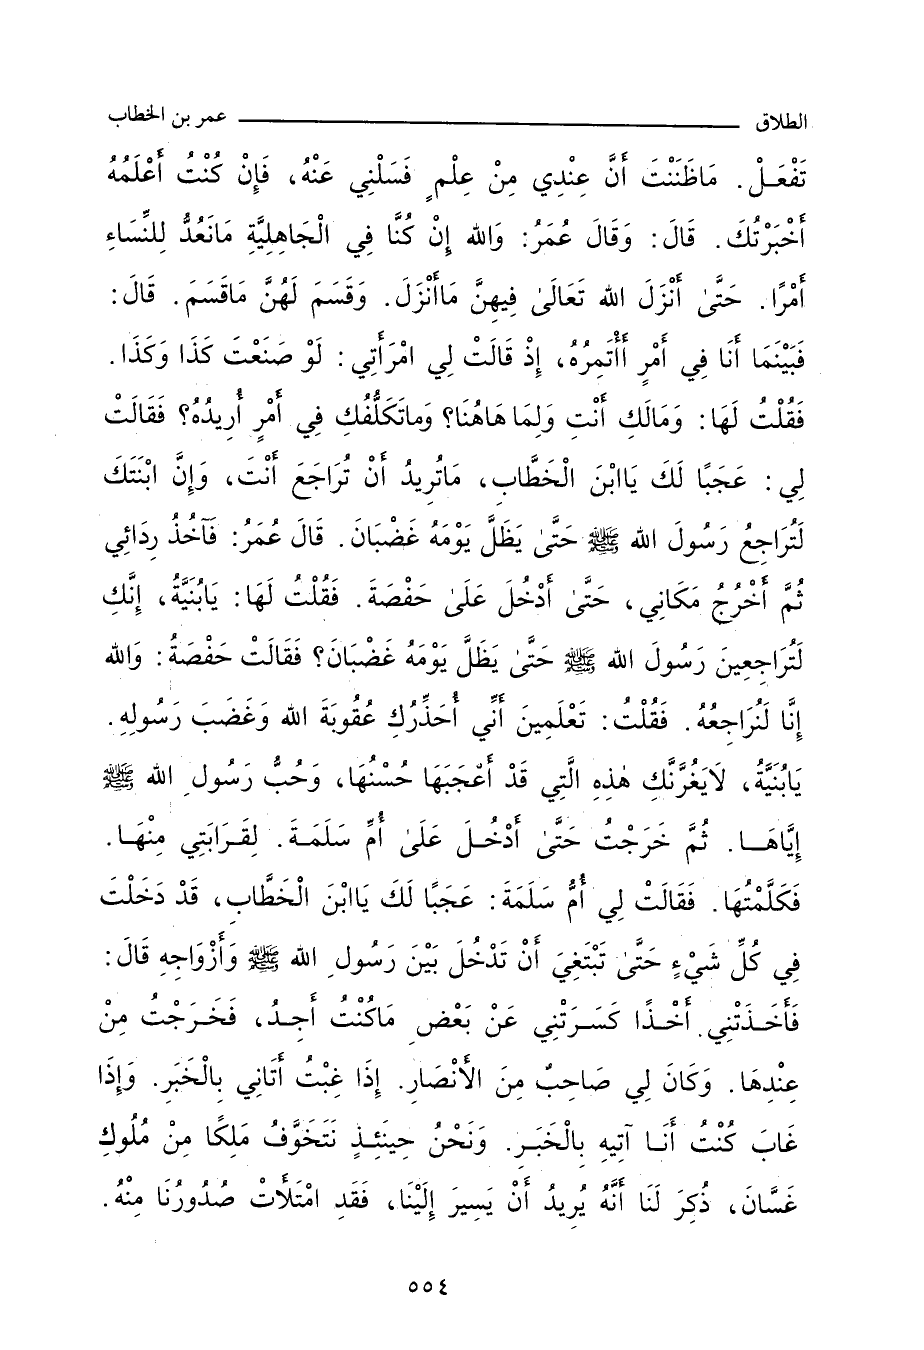 الطلاق ــــــــــــ عمر بن الخطاب
تَفْعَلْ. مَاظَنَنْتَ أَنَّ عِنْدِي مِنْ عِلْمٍ فَسَلْنِي عَنْهُ، فَإِنْ كُنْتُ أَعْلَمُهُ
أَخْبَرْتُكَ. قَالَ: وَقَالَ عُمَرُ: وَالله إِنْ كُنَّا فِي الْجَاهِلِيَّةِ مَانَعُدُّ لِلنِّسَاءِ
أَمْرًا. حَتَّىٰ أَنْزَلَ الله تَعَالَىٰ فِيهِنَّ مَاأَنْزَلَ. وَقَسَمَ لَهُنَّ مَاقَسَمَ. قَالَ:
فَبَيْنَمَا أَنَا فِي أَمْرٍ أَأْتَمِرُهُ، إِذْ قَالَتْ لِي امْرَأَتِي: لَوْ صَنَعْتَ كَذَا وَكَذَا.
فَقُلْتُ لَهَا: وَمَالَكِ أَنْتِ وَلِمَا هَاهُنَا؟ وَمَاتَكَلُّفُكِ فِي أَمْرٍ أُرِيدُهُ؟ فَقَالَتْ
لِي: عَجَبًا لَكَ يَاابْنَ الْخَطَّابِ، مَاتُرِيدُ أَنْ تُرَاجَعَ أَنْتَ، وَإِنَّ ابْنَتَكَ
لَتُرَاجِعُ رَسُولَ الله ﷺ حَتَّىٰ يَظَلَّ يَوْمَهُ غَضْبَانَ. قَالَ عُمَرُ: فَآخُذُ رِدَائِي
ثُمَّ أَخْرُجُ مَكَانِي، حَتَّىٰ أَدْخُلَ عَلَىٰ حَفْصَةَ. فَقُلْتُ لَهَا: يَابُنَيَّةُ، إِنَّكِ
لَتُرَاجِعِينَ رَسُولَ الله ﷺ حَتَّىٰ يَظَلَّ يَوْمَهُ غَضْبَانَ؟ فَقَالَتْ حَفْصَةُ: وَالله
إِنَّا لَنُرَاجِعُهُ. فَقُلْتُ: تَعْلَمِينَ أَنِّي أُحَذِّرُكِ عُقُوبَةَ الله وَغَضَبَ رَسُولِهِ.
يَابُنَيَّةُ، لَايَغُرَّنَّكِ هٰذِهِ الَّتِي قَدْ أَعْجَبَهَا حُسْنُهَا، وَحُبُّ رَسُولِ الله ﷺ
إِيَّاهَـا. ثُمَّ خَرَجْتُ حَتَّىٰ أَدْخُـلَ عَلَىٰ أُمِّ سَلَمَةَ. لِقَرَابَتِي مِنْهَـا.
فَكَلَّمْتُهَا. فَقَالَتْ لِي أُمُّ سَلَمَةَ: عَجَبًا لَكَ يَاابْنَ الْخَطَّابِ، قَدْ دَخَلْتَ
فِي كُلِّ شَيْءٍ حَتَّىٰ تَبْتَغِيَ أَنْ تَدْخُلَ بَيْنَ رَسُولِ الله ﷺ وَأَزْوَاجِهِ قَالَ:
فَأَخَـذَتْنِي أَخْـذًا كَسَـرَتْنِي عَنْ بَعْضِ مَاكُنْتُ أَجِـدُ، فَخَـرَجْتُ مِنْ
عِنْدِهَا. وَكَانَ لِي صَاحِبٌ مِنَ الْأَنْصَارِ. إِذَا غِبْتُ أَتَانِي بِالْخَبَرِ. وَإِذَا
غَابَ كُنْتُ أَنَـا آتِيهِ بِالْخَبَـرِ. وَنَحْنُ حِينَئِـذٍ نَتَخَوَّفُ مَلِكًا مِنْ مُلُوكِ
غَسَّانَ، ذُكِرَ لَنَا أَنَّهُ يُرِيدُ أَنْ يَسِيرَ إِلَيْنَا، فَقَدِ امْتَلَأَتْ صُدُورُنَا مِنْهُ.
٥٥٤